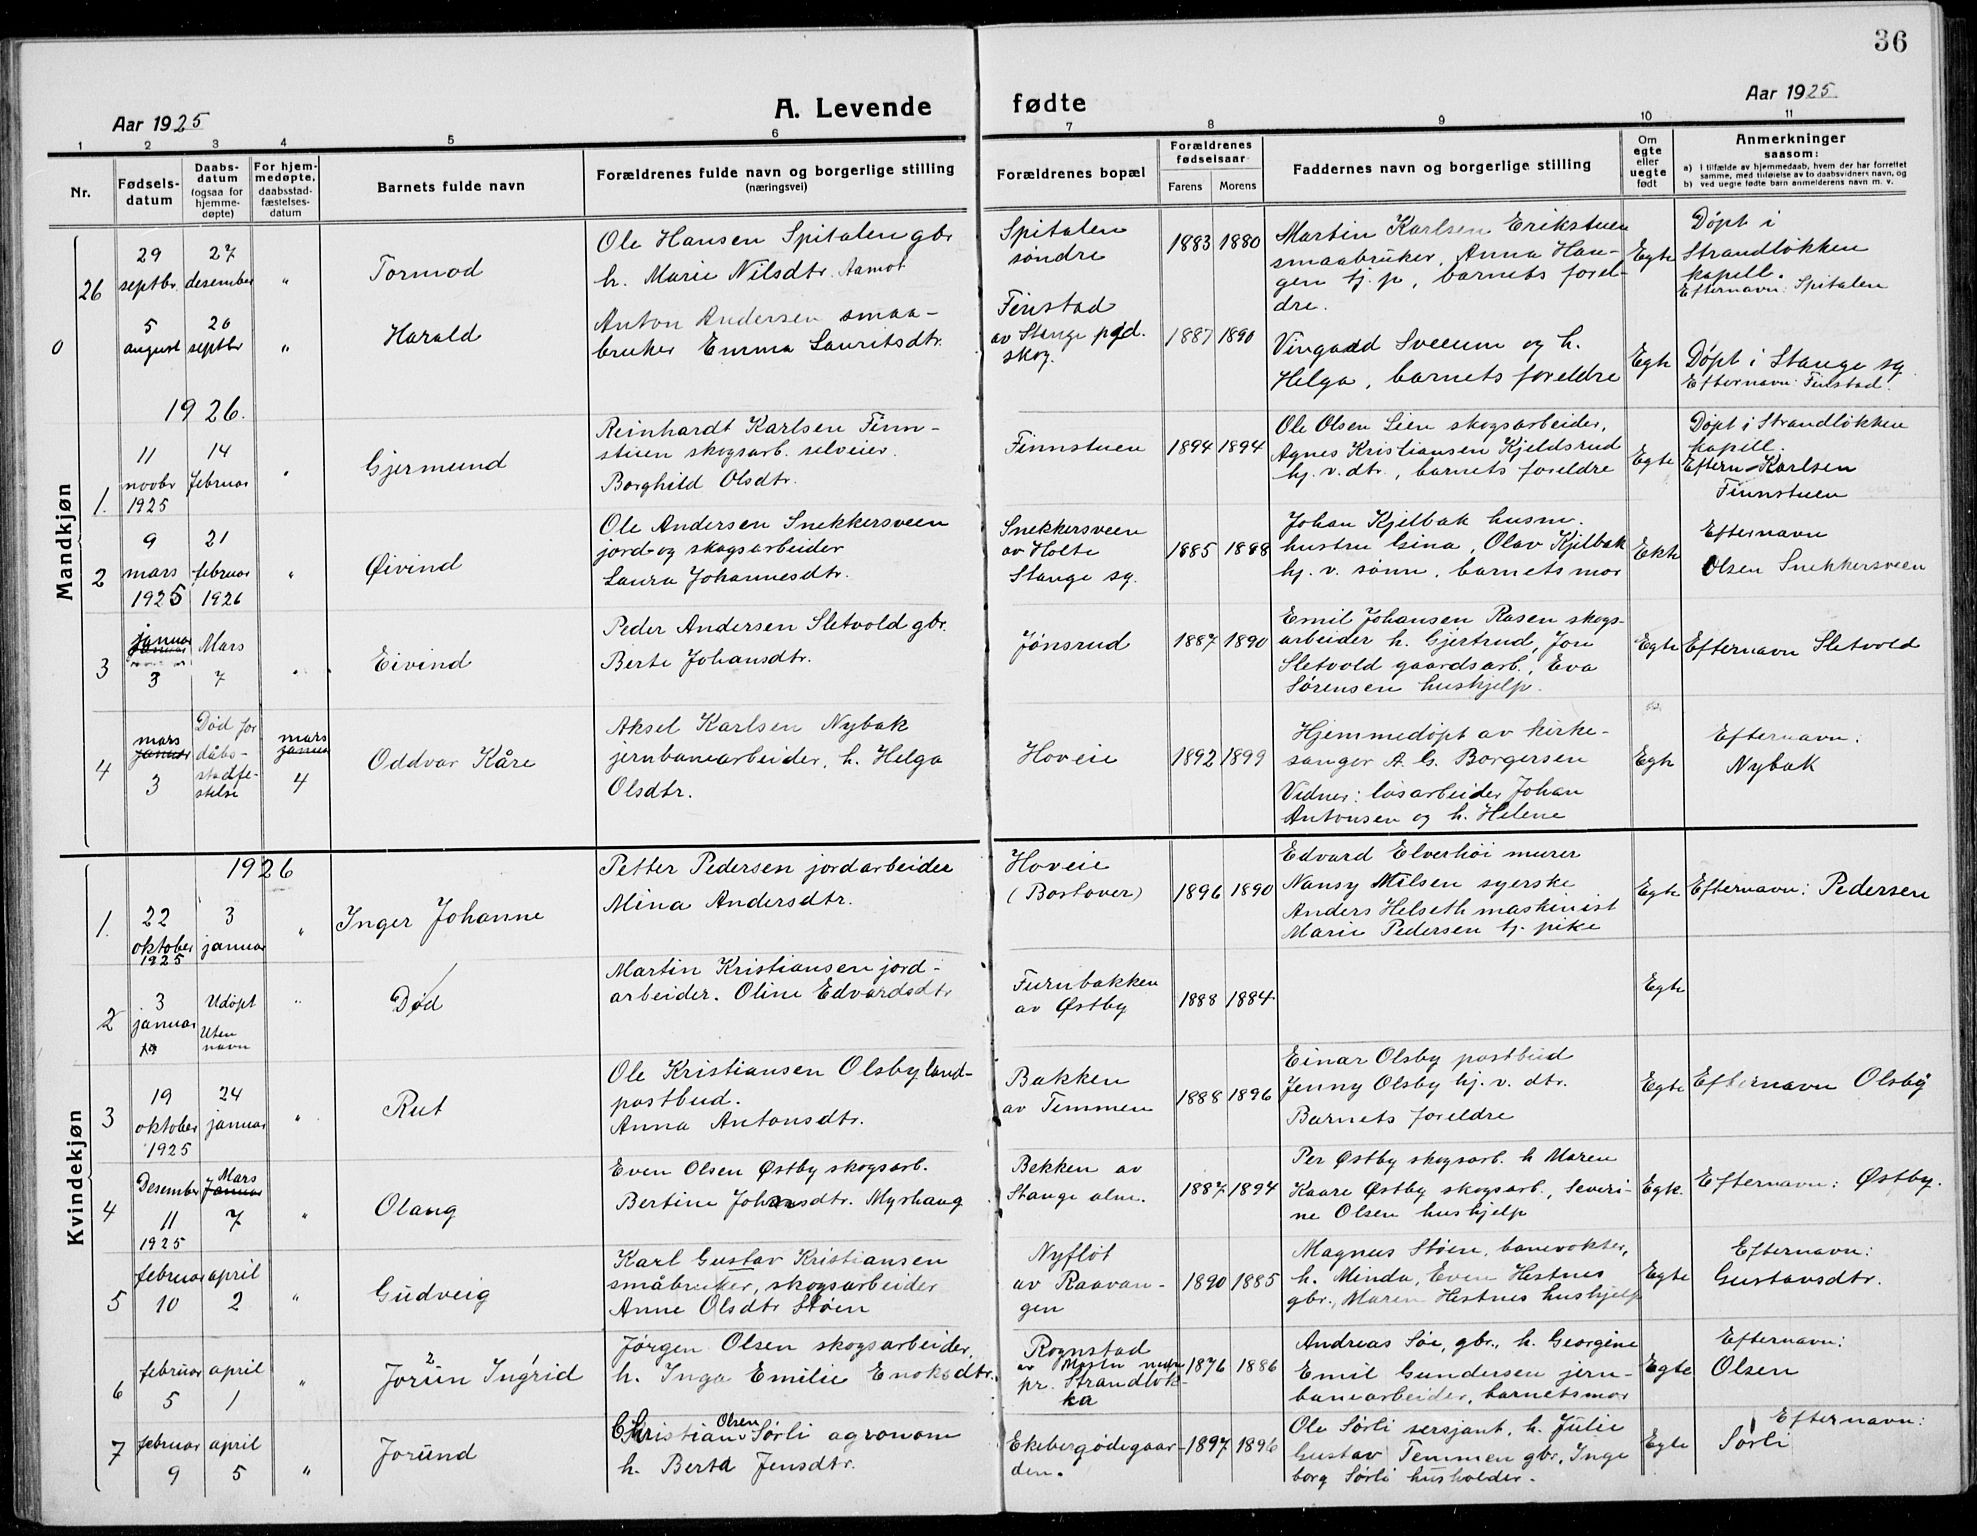 36
Aar 1925
A. Levende
fødte
Aar 1925
1 2 3 4 5 6 7 8 9 10 11
Nr.
Fødsels-
datum
Daabs-
datum
(ogsaa for
hjemme-
døpte)
For hjem-
medøpte,
daabsstad-
fæstelses-
datum
Barnets fulde navn
Forældrenes fulde navn og borgerlige stilling
(næringsvei)
Forældrenes bopæl
Forældrenes
fødselsaar
Farens
Morens
Faddernes navn og borgerlige stilling
Om
egte
eller
uegte
født
Anmerkninger
saasom:
a) i tilfælde av hjemmedaab, hvem der har forrettet
samme, med tilføielse av to daabsvidners navn, og
b) ved uegte fødte barn anmelderens navn m. v.
Mandkjøn
26
29
septbr.
27
desember
"
Tormod
Ole Hansen Spitalen gbr
h. Marie Nilsdtr. Aamot
Spitalen
søndre
1883 1880
Martin Karlsen Erikstuen
smaabruker, Anna Hau-
gen tj. p, barnets forel-
dre.
Egte
Døpt i
Strandløkken
kapell.
Efternavn: Spitalen
0
5
august
20
septbr
"
Harald
Anton Andersen smaa-
bruker Emma Lauritsdtr.
Finstad
av Stange pgd.
skog.
1887 1890
Vingaad Sveum og h.
Helga, barnets foreldre
Egte
Døpt i Stange sg
Efternavn: Finstad.
1926.
1.
11
novbr
1925
14
februar
"
Gjermund
Reinhardt Karlsen Finn-
stuen skogsarb. selveier.
Borghild Olsdtr.
Finnstuen
1894 1894
Ole Olsen Lien skogsarbeider,
Agnes Kristiansen Kjeldsrud
hj. v. dtr., barnets foreldre
Egte
Døpt i Strandløkken
kapell.
Eftern. Karlsen
Finnstuen
2
9
mars
1925
21
februar
1926
"
Øivind
Ole Andersen Snekkersveen
jord- og skogsarbeider
Laura Johannesdtr.
Snekkersveen
av Holte
Stange sg.
1885 1888
Johan Kjelbak husm.
hustru Gina, Olav Kjelbak
hj. v. sønn, barnets mor
Ekte
Efternavn
Olsen Snekkersveen
3
januar
3
Mars
7
"
Eivind
Peder Andersen Sletvold gbr.
Berte Johansdtr.
Jønsrud
1887 1890
Emil Johansen Rosen skogs-
arbeider h. Gjertrud, Jon
Sletvold gaardsarb., Eva
Sørensen hushjelp.
Egte
Efternavn Sletvold
4
mars
januar
3
Død før
dåbs-
stadfe-
stelse
mars
januar
4
Oddvar Kåre
Aksel Karlsen Nybak
jernbanearbeider, h. Helga
Olsdtr.
Hoveie
1892 1899
Hjemmedøpt av kirke-
sanger A. G. Borgersen
Vidner: løsarbeider Johan
Antonsen og h. Helene
Egte
Efternavn:
Nybak
Kvindekjøn
1926
1.
22
oktober
1925
3
januar
"
Inger Johanne
Petter Pedersen jordarbeider
Mina Andersdtr.
Hoveie
(Bostover)
1896 1890
Edvard Elverhöi murer
Nansy Milsen syerske
Anders Helseth maskinist
Marie Pedersen tj. pike
Egte
Efternavn: Pedersen
2
3
januar
Udøpt
Uten
navn
"
Død
Martin Kristiansen jord-
arbeider. Oline Edvardsdtr
Furubakken
av Østby
1888 1884
Egte
3
19
oktober
1925
24
januar
"
Rut
Ole Kristiansen Olsby land-
postbud.
Anna Antonsdtr.
Bakken
av Temmen
1888 1896
Einar Olsby postbud
Jenny Olsby hj. v. dtr.
Barnets foreldre
Egte
Efternavn Olsby
4
Desember
11
1925
Mars
Januar
7
"
Olaug
Even Olsen Østby skogsarb.
Bertine Johansdtr. Myrhaug
Bekken av
Stange alm.
1887 1894
Per Østby skogsarb. h Maren
Kaare Østby skogsarb., Severi-
ne Olsen hushjelp
Egte.
Efternavn: Østby.
5
februar
10
april
2
"
Gudveig
Karl Gustav Kristiansen
småbruker, skogsarbeider
Anne Olsdtr Støen
Nyfløt
av Raavan-
gen
1890 1885
Magnus Støen, banevokter,
h. Minda, Even Hestnes
gbr., Maren Hestnes hushjelp
Egte
Efternavn:
Gustavsdtr.
6
februar
5
april
1
"
Jorun Ingrid
Jørgen Olsen skogsarbeider,
h. Inga Emilie Enoksdtr.
Rognstad
av Mostu nedre
pr. Strandløk-
ka
1876 1886
Andreas Søe, gbr., h. Georgine
Emil Gundersen jern-
banearbeider, barnets mor
Egte
Efternavn:
Olsen
7
februar
9
april
5
"
Jorund
Olsen
Christian Sørli agronom
h. Berta Jensdtr.
Ekebergødegaar-
den.
1897 1896
Ole Sørli sersjant, h. Julie
Gustav Temmen gbr., Inge
borg Sørli husholder.
Egte
Efternavn:
Sørli